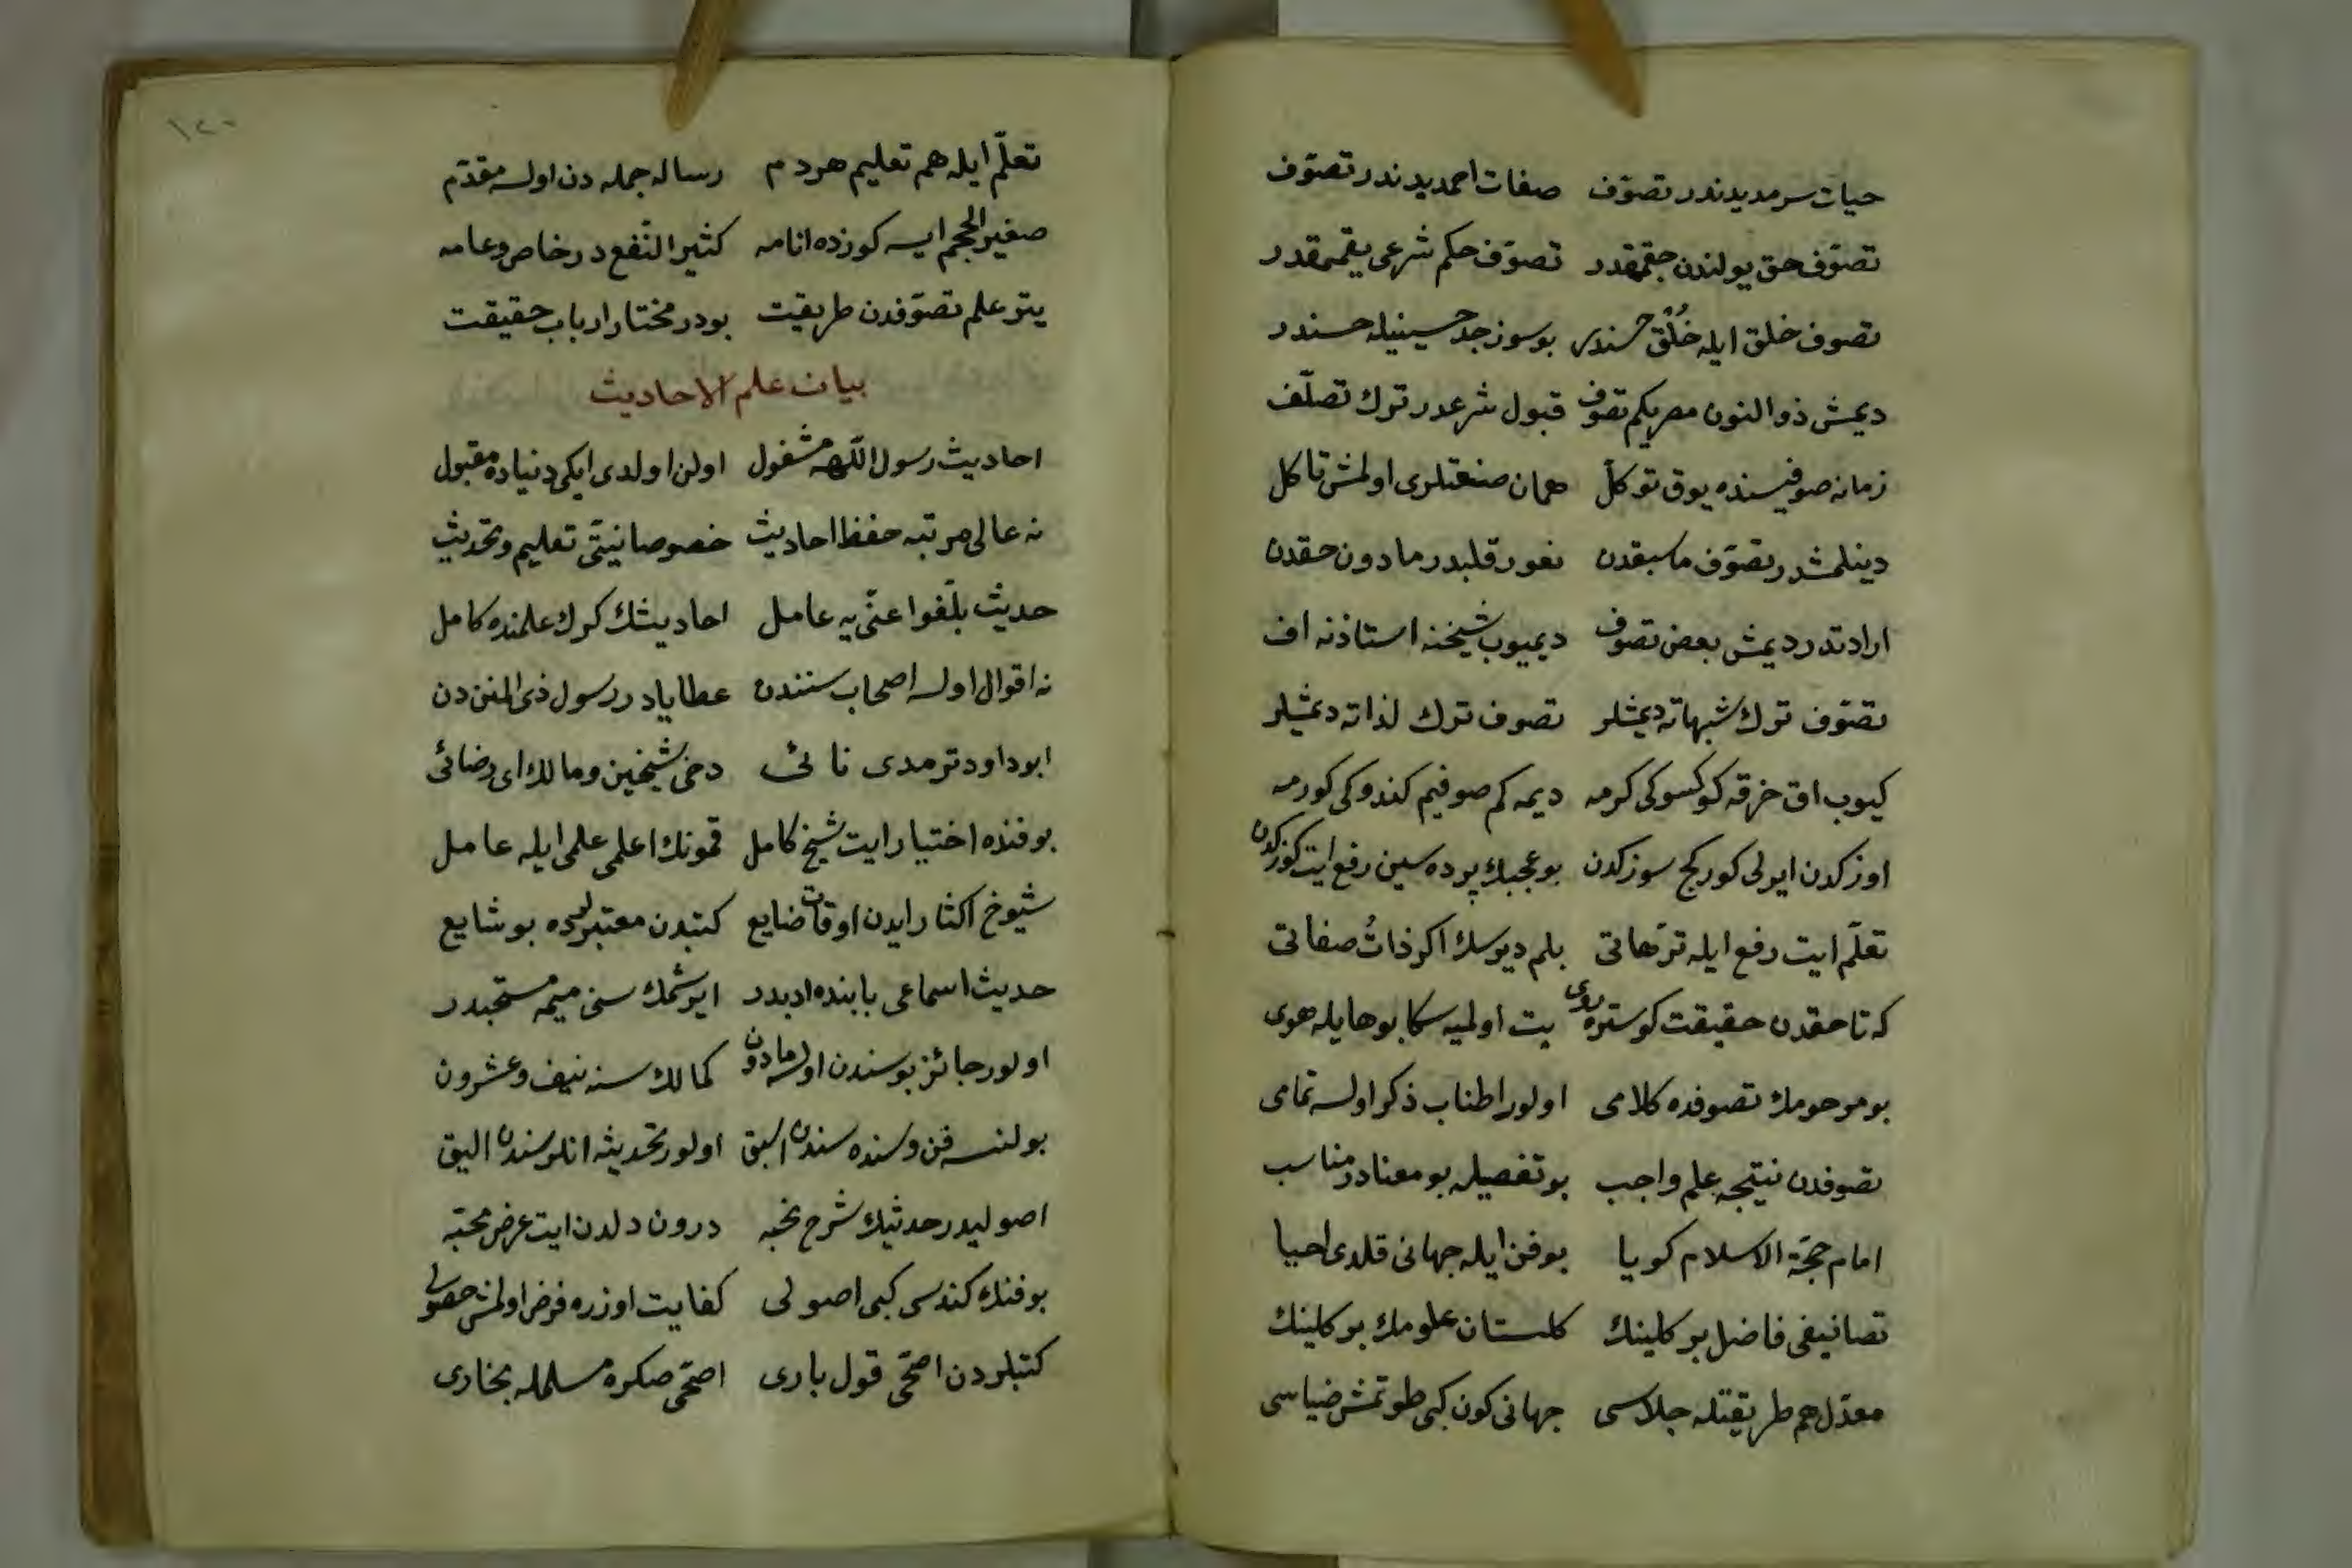 حيات سرمديدندر تصوّف صفات احمديدندر تصوّف
تصوّف حق يولندن چقمقدر تصوّف حكم شرعى يقمقدر
تصوف خلق ايله خُلُق حسندر بوسوز جد حسينيله حسندر
ديمش ذو النون مصريكم تصوف قبول شرعدر ترك تصلّف
زمانه صوفيسنده يوق توكل همان صنعتلرى اولمش تاكل
دينلمشدر تصوّف ماسبقدن نفور قلبدر مادون حقدن
ارادتدر ديمش بعض تصوف ديميوب شيخنه استاذنه اف
تصوّف ترك شبهاته ديمشلر تصوف ترك لذاته ديمشلر
كيوب اق خرقه كوكسوكى كرمه ديمه كم صوفيم كندوكى كورمه
اوزكدن ايرلى كوركج سوزكدن بوعجبك پرده سين رفع ايت كوزكدن
تعلّم ايت رفع ايله ترّهاتى بلم ديوسك اكر ذاتُ صفاتى
كه تا حقدن حقيقت كوستره روى يت اولميه سكا بوهايله هوى
بو مرحومك تصوفده كلامى اولور اطناب ذكر اولسه تمامى
تصوفدن نتيجه علم واجب بو تفصيله بو معنادر مناسب
امام حجّة الاسلام كويا بوفن ايله جهانى قلدى احيا
تصانيفى فاضل بركلينك كلستان علومك بركلينك
معدّل هم طريقتله جلاسى جهانى كون كبى طوتمش ضياسى
١٢٠
تعلّم ايله هم تعليم هردم رساله جمله دن اولسه مقدّم
صغير الحجم ايسه كورزده انامه كثير النّفع در خاص وعامه
يتر علم تصوّفدن طريقت بودر مختار ارباب حقيقت
بيان علم الاحاديث
احاديث رسول اللّهه مشغول اولن اولدى ايكى دنياده مقبول
نه عالى مرتبه حفظ احاديث خصوصا نيتى تعليم وتحديث
حديث بلّغوا عنّى يه عامل احاديثك كرك علمنده كامل
نه اقوال اولسه اصحاب سنندن عطايادر رسول ذى المنن دن
ابوداود ترمدى نائى دخى شيخين ومالك اى رضائى
بوفنده اختيار ايت شيخ كامل قمونك اعلمى علمى ايله عامل
شيوخ اكثار ايدن اوقات ضايع كتبدن معتبرلرده بو شايع
حديث اسماعى بابنده ادبدر ايرشمك سنى ميمه مستحبدر
اولور جائز بوسندن اولسه مادون كمالك سنه نيف وعشرون
بولنسه فن وسنده سندن اسبق اولور تحديثه انلر سندن اليق
اصوليدر حديثك شرح نخبه درون دلدن ايت عرض محبّه
بوفنك كندسى كبى اصولى كفايت اوزره فرض اولمش حصولى
كتبلردن اصحّى قول بارى اصحّى صكره مسلمله بخارى